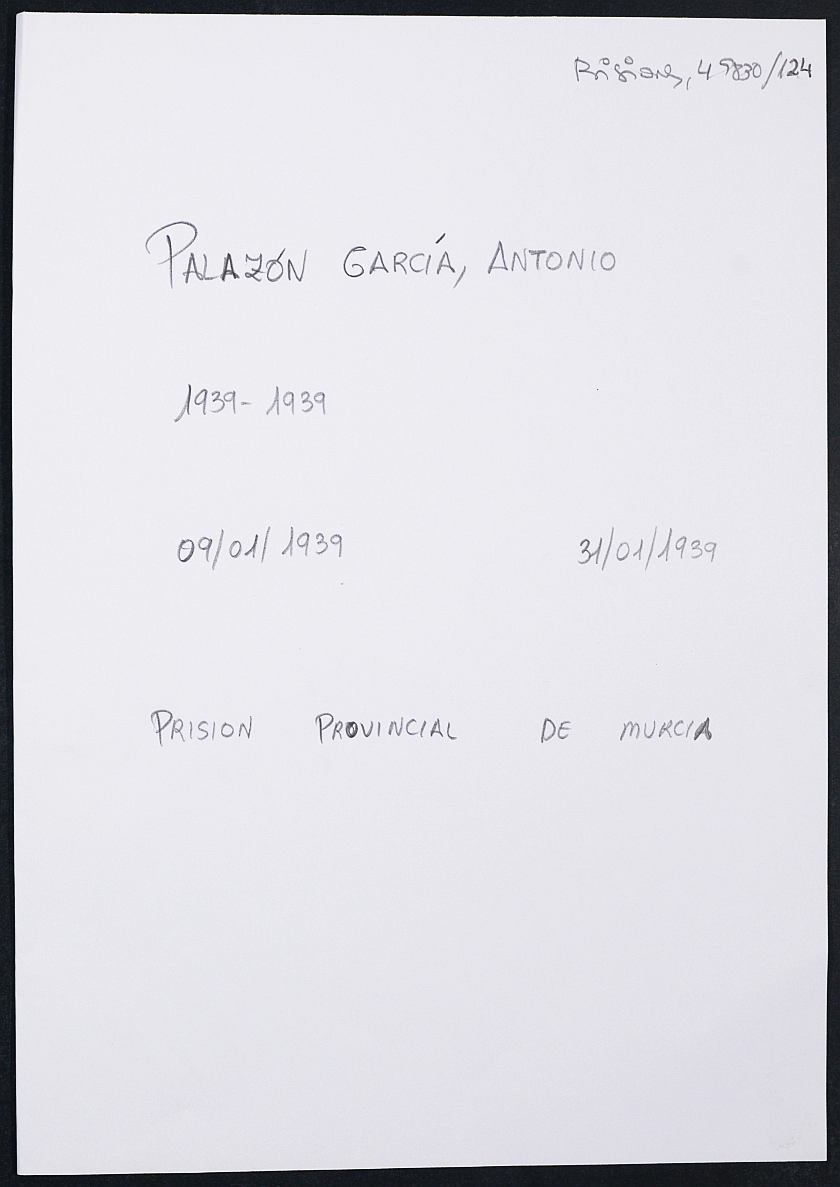 Prisiones, 49830/124
PALAZÓN GARCÍA, ANTONIO
1939- 1939
09/01/1939 31/01/1939
PRISION PROVINCIAL DE MURCIA